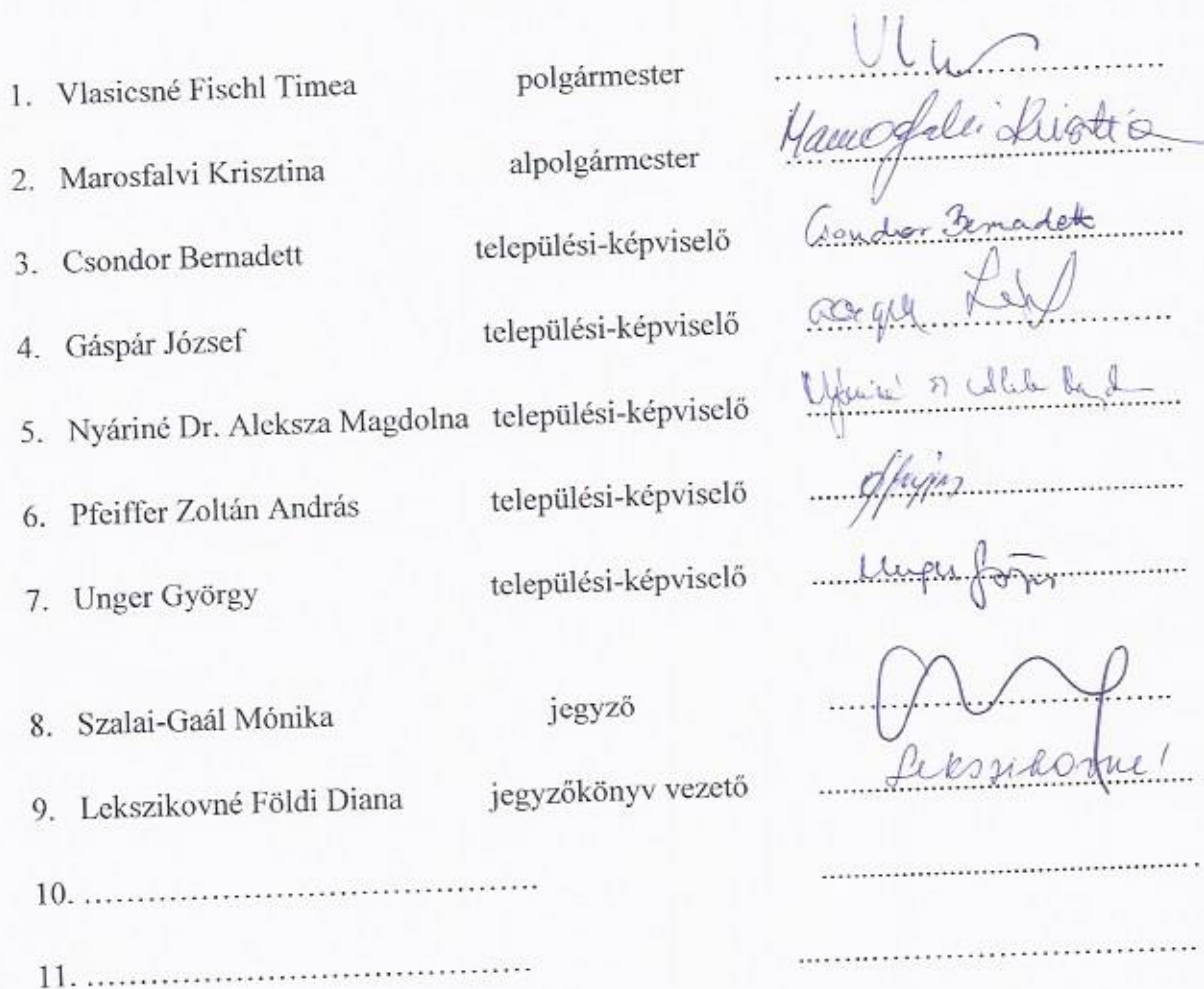 1. Vlasicsné Fischl Timea polgármester
2. Marosfalvi Krisztina alpolgármester Marosfalvi Krisztina
3. Csondor Bernadett települési-képviselő Csondor Bernadett
4. Gáspár József települési-képviselő
5. Nyáriné Dr. Aleksza Magdolna települési-képviselő
6. Pfeiffer Zoltán András települési-képviselő
7. Unger György települési-képviselő Unger György
8. Szalai-Gaál Mónika jegyző
9. Lekszikovné Földi Diana jegyzőkönyv vezető Lekszikovné
10. ........................................
11. ........................................